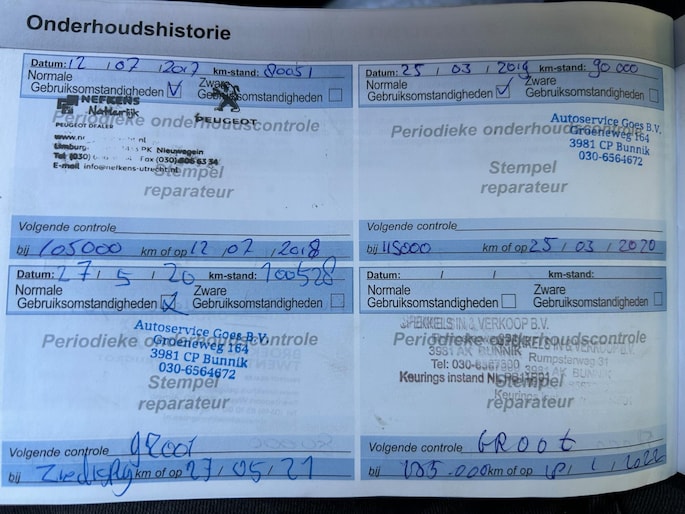 Onderhoudshistorie
Datum: 12 / 07 / 2017 km-stand: 80051
Normale Gebruiksomstandigheden Zware Gebruiksomstandigheden
NEFKENS
PEUGEOT DEALER
PEUGEOT
Periodieke onderhoudscontrole
PK Nieuwegein
Tel (030) Fax (030) 606 63 34
E-mail info@nefkens-utrecht.nl
Stempel
reparateur
Volgende controle
bij 105000 km of op 12 / 07 / 2018
Datum: 25 / 03 / 2019 km-stand: 90 000
Normale Gebruiksomstandigheden Zware Gebruiksomstandigheden
Autoservice Goes B.V.
Groeneweg 164
3981 CP Bunnik
030-6564672
Periodieke onderhoudscontrole
Stempel
reparateur
Volgende controle
bij 115000 km of op 25 / 03 / 2020
Datum: 27 / 5 / 20 km-stand: 100528
Normale Gebruiksomstandigheden Zware Gebruiksomstandigheden
Autoservice Goes B.V.
Groeneweg 164
3981 CP Bunnik
030-6564672
Periodieke onderhoudscontrole
Stempel
reparateur
Volgende controle groot
bij km of op 27 / 05 / 21
Datum: / / / km-stand:
Normale Gebruiksomstandigheden Zware Gebruiksomstandigheden
IN & VERKOOP B.V.
Periodieke onderhoudscontrole
BUNNIK
Rumpsterweg 31
Keurings instand
Stempel
reparateur
Volgende controle GROOt
bij km of op